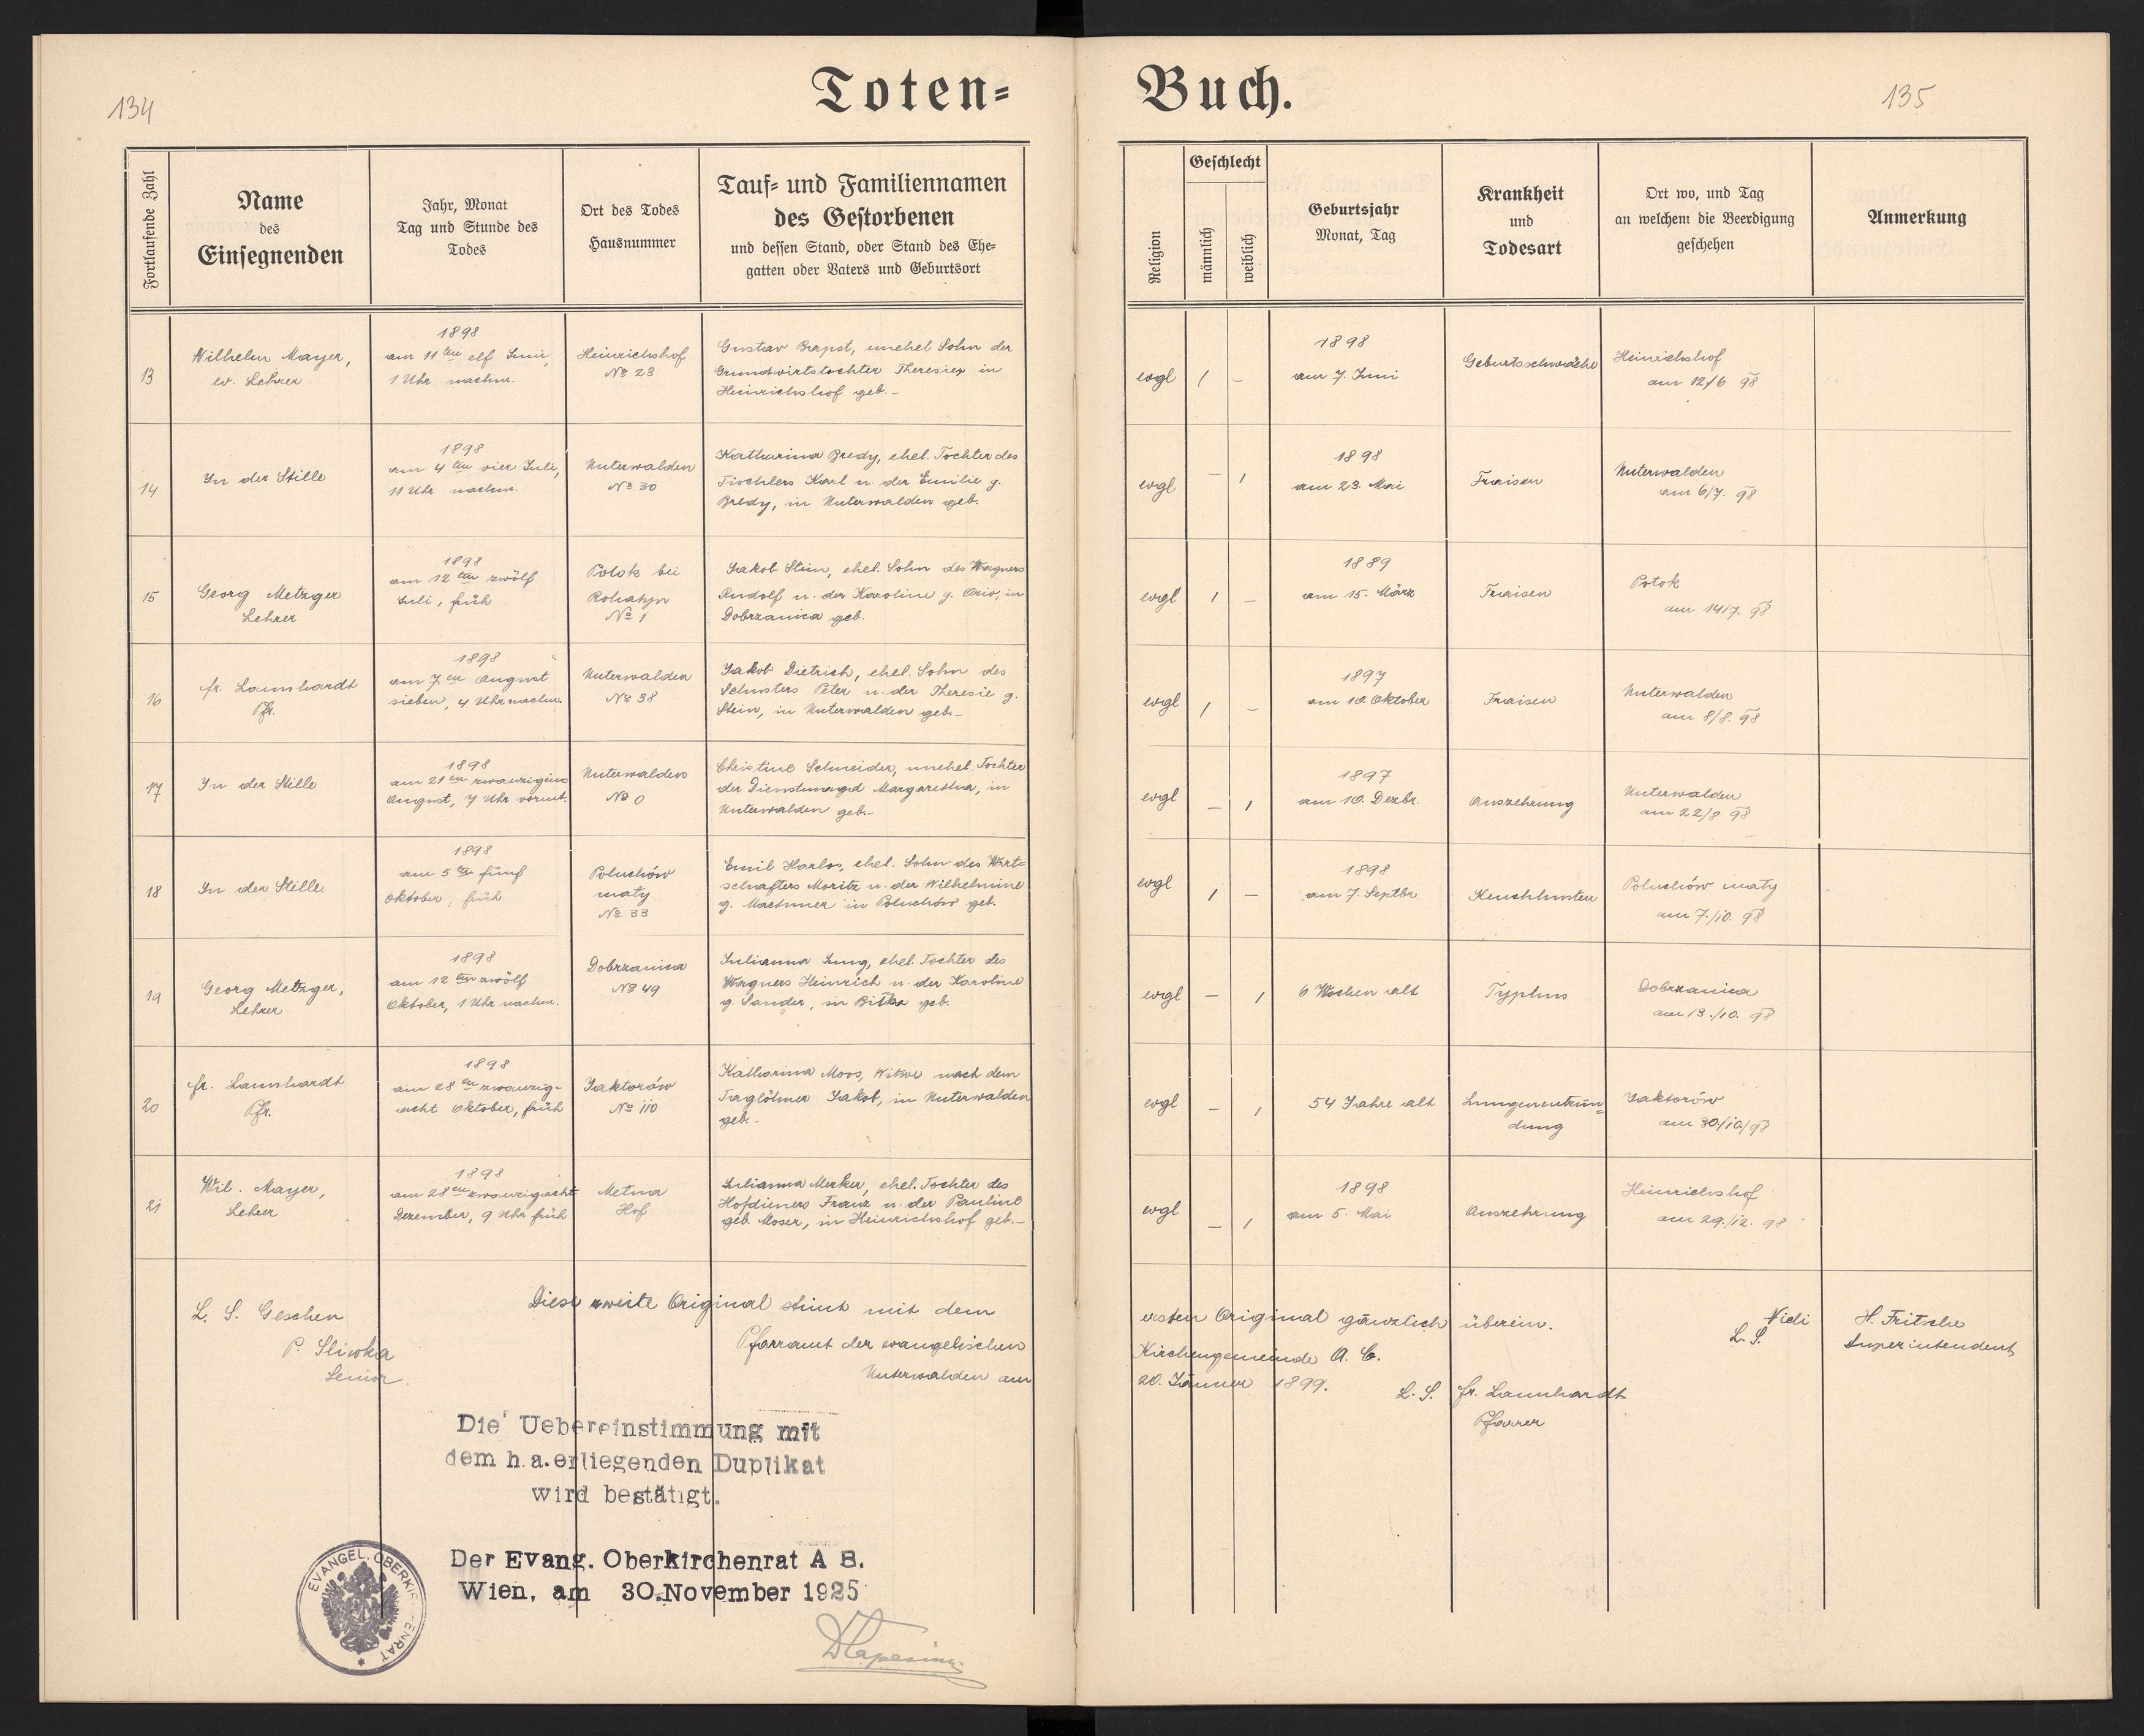 134
Toten=
Buch.
135
Fortlaufende Zahl
Name
des
Einsegnenden
Jahr, Monat
Tag und Stunde des
Todes
Ort des Todes
Hausnummer
Tauf= und Familiennamen
des Gestorbenen
und dessen Stand, oder Stand des Ehe=
gatten oder Vaters und Geburtsort
Religion
Geschlecht
männlich
weiblich
Geburtsjahr
Monat, Tag
Krankheit
und
Todesart
Ort wo, und Tag
an welchem die Beerdigung
geschehen
Anmerkung
13
Wilhelm Mayer,
ev. Lehrer
1898
am 11ten elf Juni,
1 Uhr nachm.
Heinrichshof
No 23
Gustav Brapst, unehel Sohn der
Grundwirtstochter Theresie, in
Heinrichshof geb. -
evgl
/
-
1898
am 7. Juni
Geburtsschwäche
Heinrichshof
am 12/6 98
14
In der Stille
1898
am 4ten vier Juli,
11 Uhr nachm.
Unterwalden
No 30
Katharina Bredy, ehel. Tochter des
Tischlers Karl u. der Emilie g.
Bredy, in Unterwalden geb.
evgl
-
/
1898
am 23. Mai
Fraisen
Unterwalden
am 6/7. 98
15
Georg Metzger
Lehrer
1898
am 12ten zwölf
Juli, früh
Potok bei
Rohatyn
No 1
Jakob Stein, ehel. Sohn des Wagners
Rudolf u. der Karoline g. in
Dobrzanica geb.
evgl
/
-
1889
am 15. März
Fraisen
Potok
am 14/7. 98
16
fr. Launhardt
Pfr.
1898
am 7en August
sieben, 4 Uhr nachm.
Unterwalden
No 38
Jakob Dietrich, ehel. Sohn des
Schusters Peter u. der Theresie g.
Stein, in Unterwalden geb. -
evgl
/
-
1897
am 10. Oktober
Fraisen
Unterwalden
am 8/8. 98
17
In der Stille
1898
am 21en zwanzigeins
August, 7 Uhr vormt.
Unterwalden
No 0
Christine Schneider, unehel. Tochter
der Dienstmagd Margaretha, in
Unterwalden geb. -
evgl
-
/
1897
am 10. Dezbr.
Auszehrung
Unterwalden
am 22/8 98
18
In der Stille
1898
am 5ten fünf
Oktober, früh
Poluchów
maty
No 33
Emil Harlos, ehel. Sohn des Wirt=
schafters Moritz u. der Wilhelmine
g. Machmer in Poluchów geb.
evgl
/
-
1898
am 7. Septbr
Keuchhusten
Poluchów maty
am 7./10. 98
19
Georg Metzger,
Lehrer
1898
am 12ten zwölf
Oktober, 1 Uhr nachm.
Dobrzanica
No 49
Julianna Jung, ehel. Tochter des
Wagners Heinrich u. der Karoline
g. Sander, in Bitka geb.
evgl
-
/
6 Wochen alt
Typhus
Dobrzanica
am 13./10. 98
20
fr. Launhardt
Pfr.
1898
am 28en zwanzig-
acht Oktober, früh
Jaktorów
No 110
Katharina Moos, Witwe nach dem
Taglöhner Jakob, in Unterwalden
geb. -
evgl
-
/
54 Jahre alt
Lungenentzün=
dung
Jaktorów
am 30/10/98
21
Wil. Mayer,
Lehrer
1898
am 28en zwanzigacht
Dezember, 9 Uhr früh
Metna
Hof
Julianna Merker, ehel. Tochter des
Hofdieners Franz u. der Pauline
geb. Moser, in Heinrichshof geb. -
evgl
-
/
1898
am 5. Mai
Auszehrung
Heinrichshof
am 29./12. 98
L. S. Gesehen
P. Sliwka
Senior.
Diese zweite Original stimt mit dem
ersten Original gänzlich überein.
Pfarramt der evangelischen
Kirchengemeinde A. C.
Unterwalden am
20. Jänner 1899.
L. S. fr. Launhardt
Pfarrer
Vidi
L. S.
H. Fritsche
Superintendent
Die Uebereinstimmung mit
dem h.a.erliegenden Duplikat
wird bestätigt.
Der Evang. Oberkirchenrat A B.
Wien, am 30.November 1925
EVANGEL. OBERKIRCHENRAT